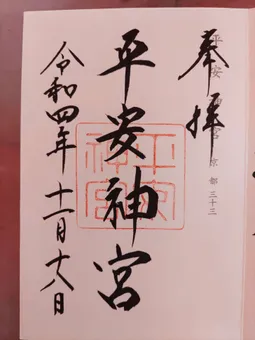 奉拝
平安神宮 京都 三十三
平安神宮
平安神宮
令和四年 十一月十八日